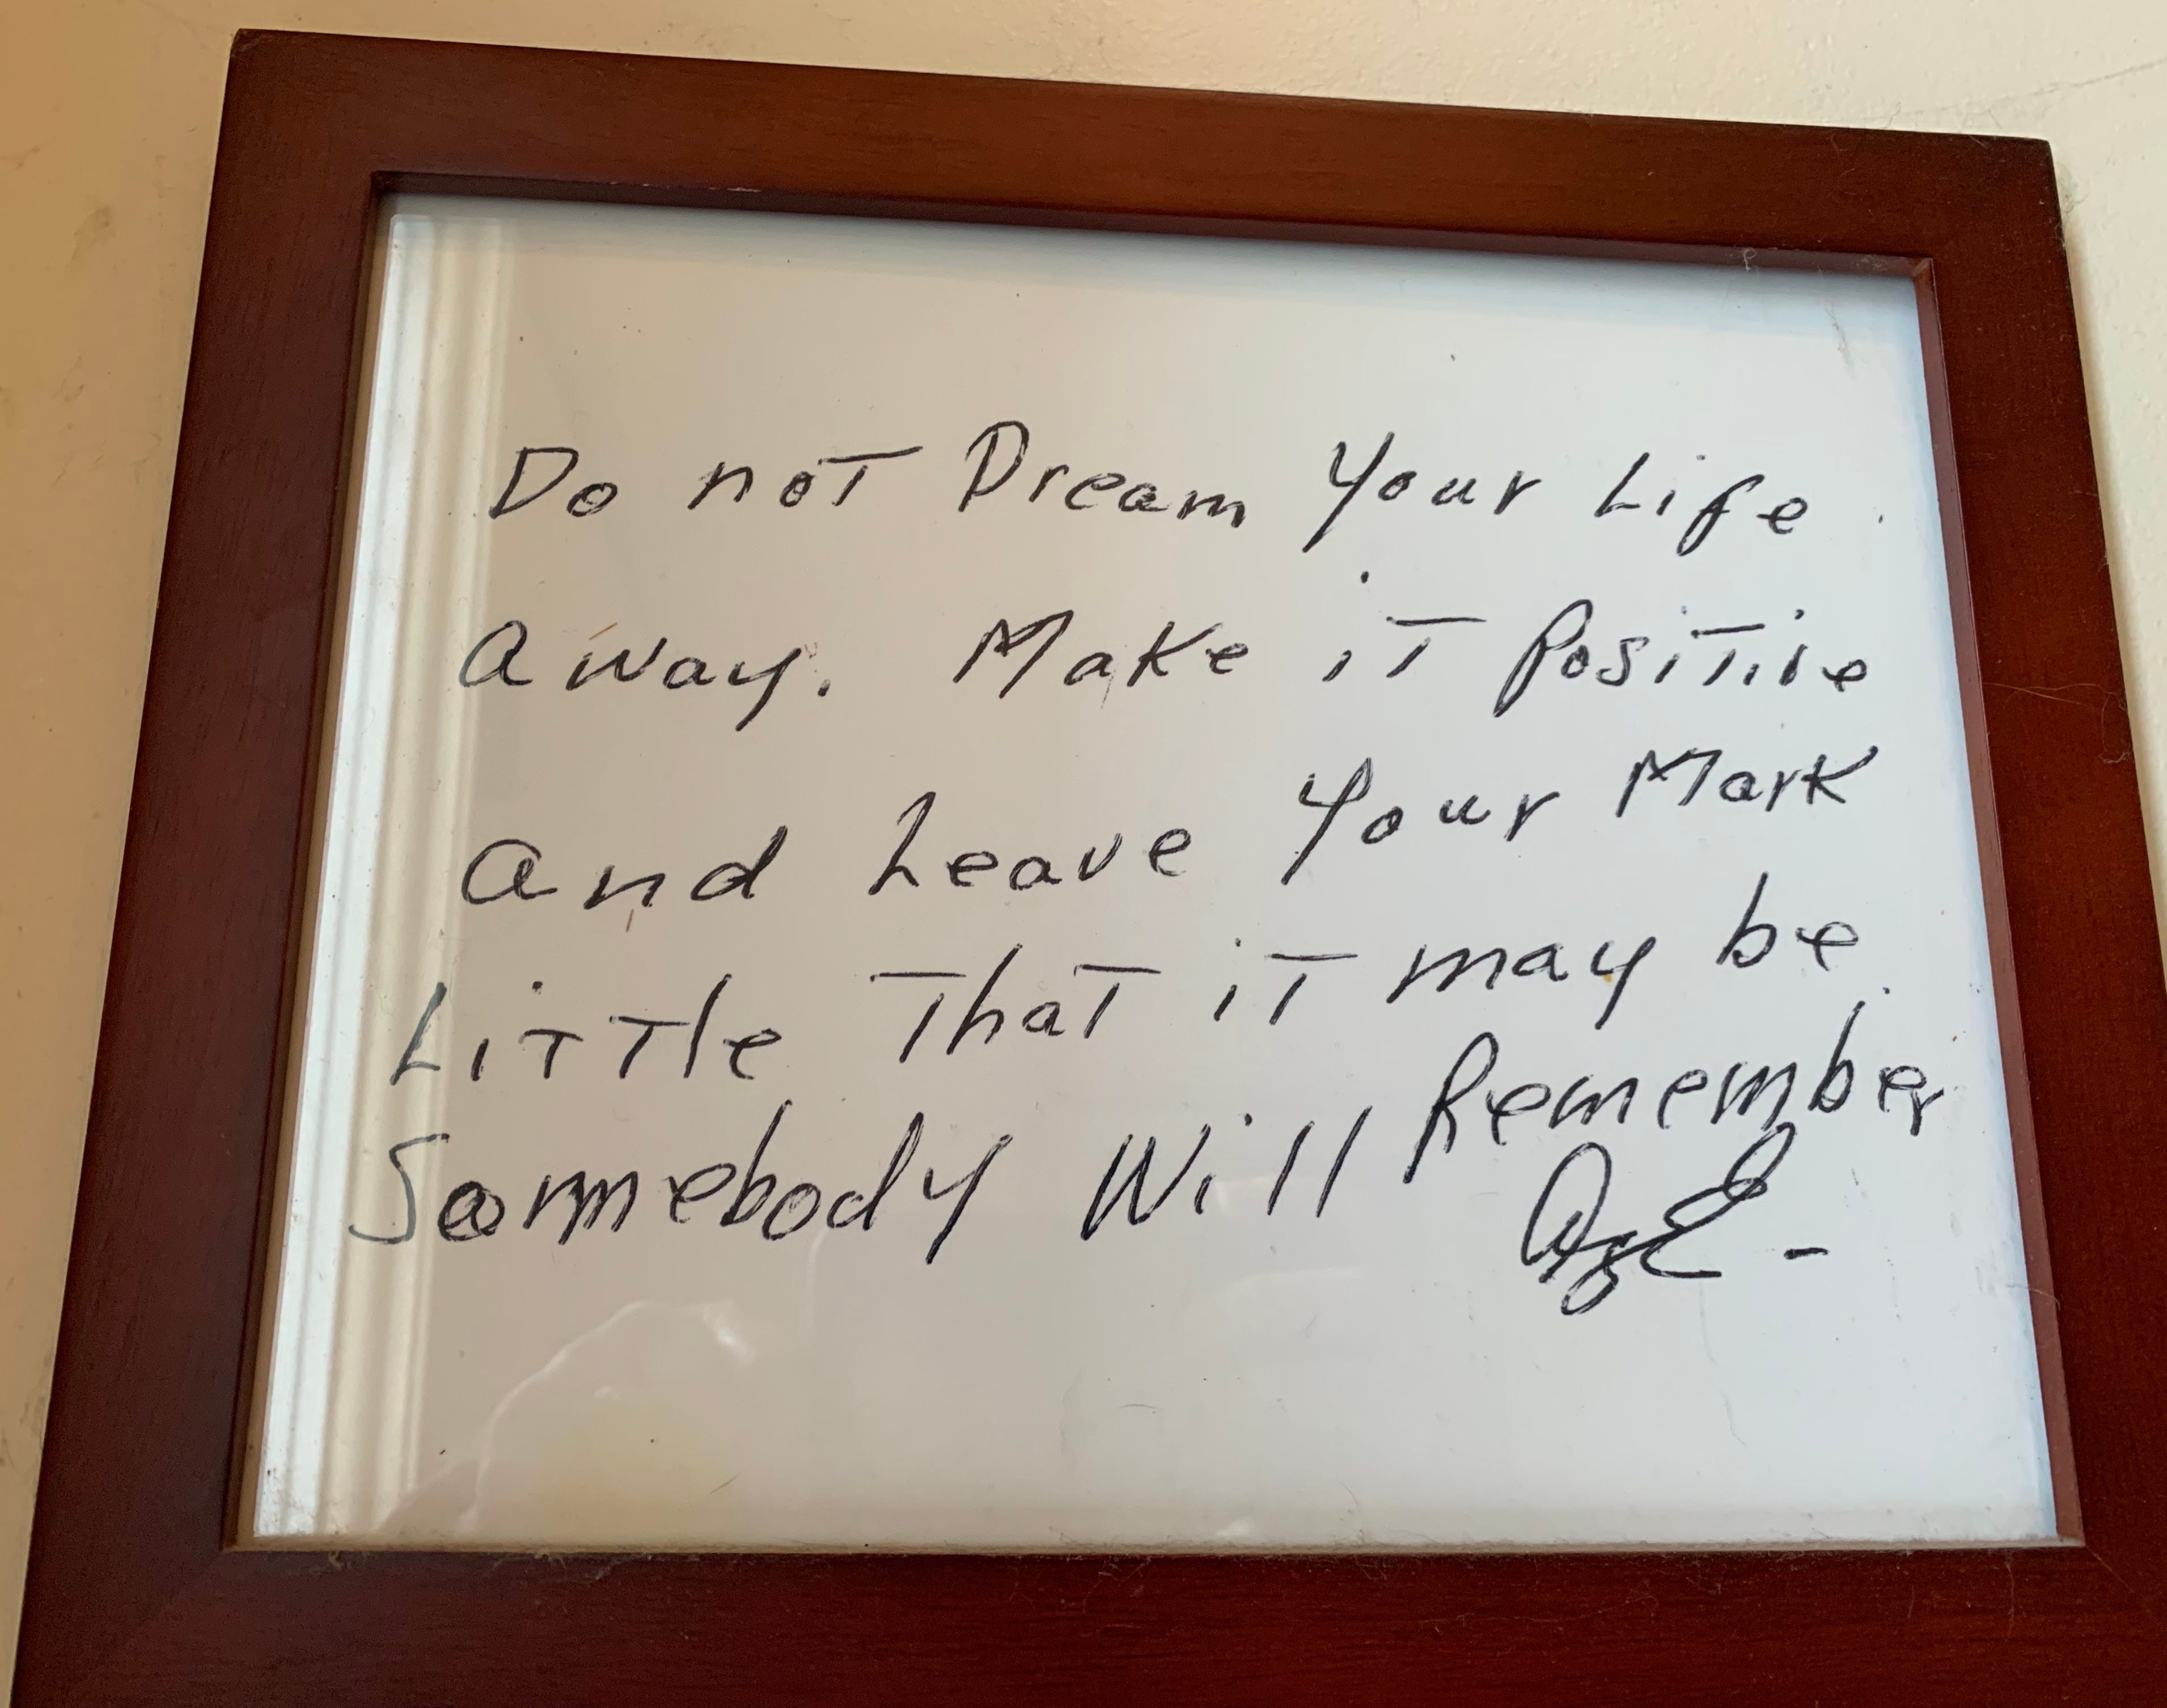 Do not Dream Your Life
away. Make it Positive
and Leave Your Mark
Little That it may be
Somebody Will Remember